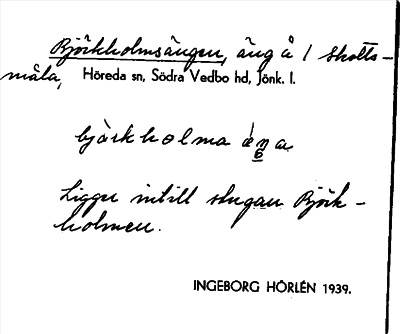 Björkholmsängen, äng å 1 Skotts-
måla, Höreda sn, Södra Vedbo hd, Jönk. l.
bjàrkholma
Ligger intill stugan Björk-
holmen.
INGEBORG HÖRLÉN 1939.